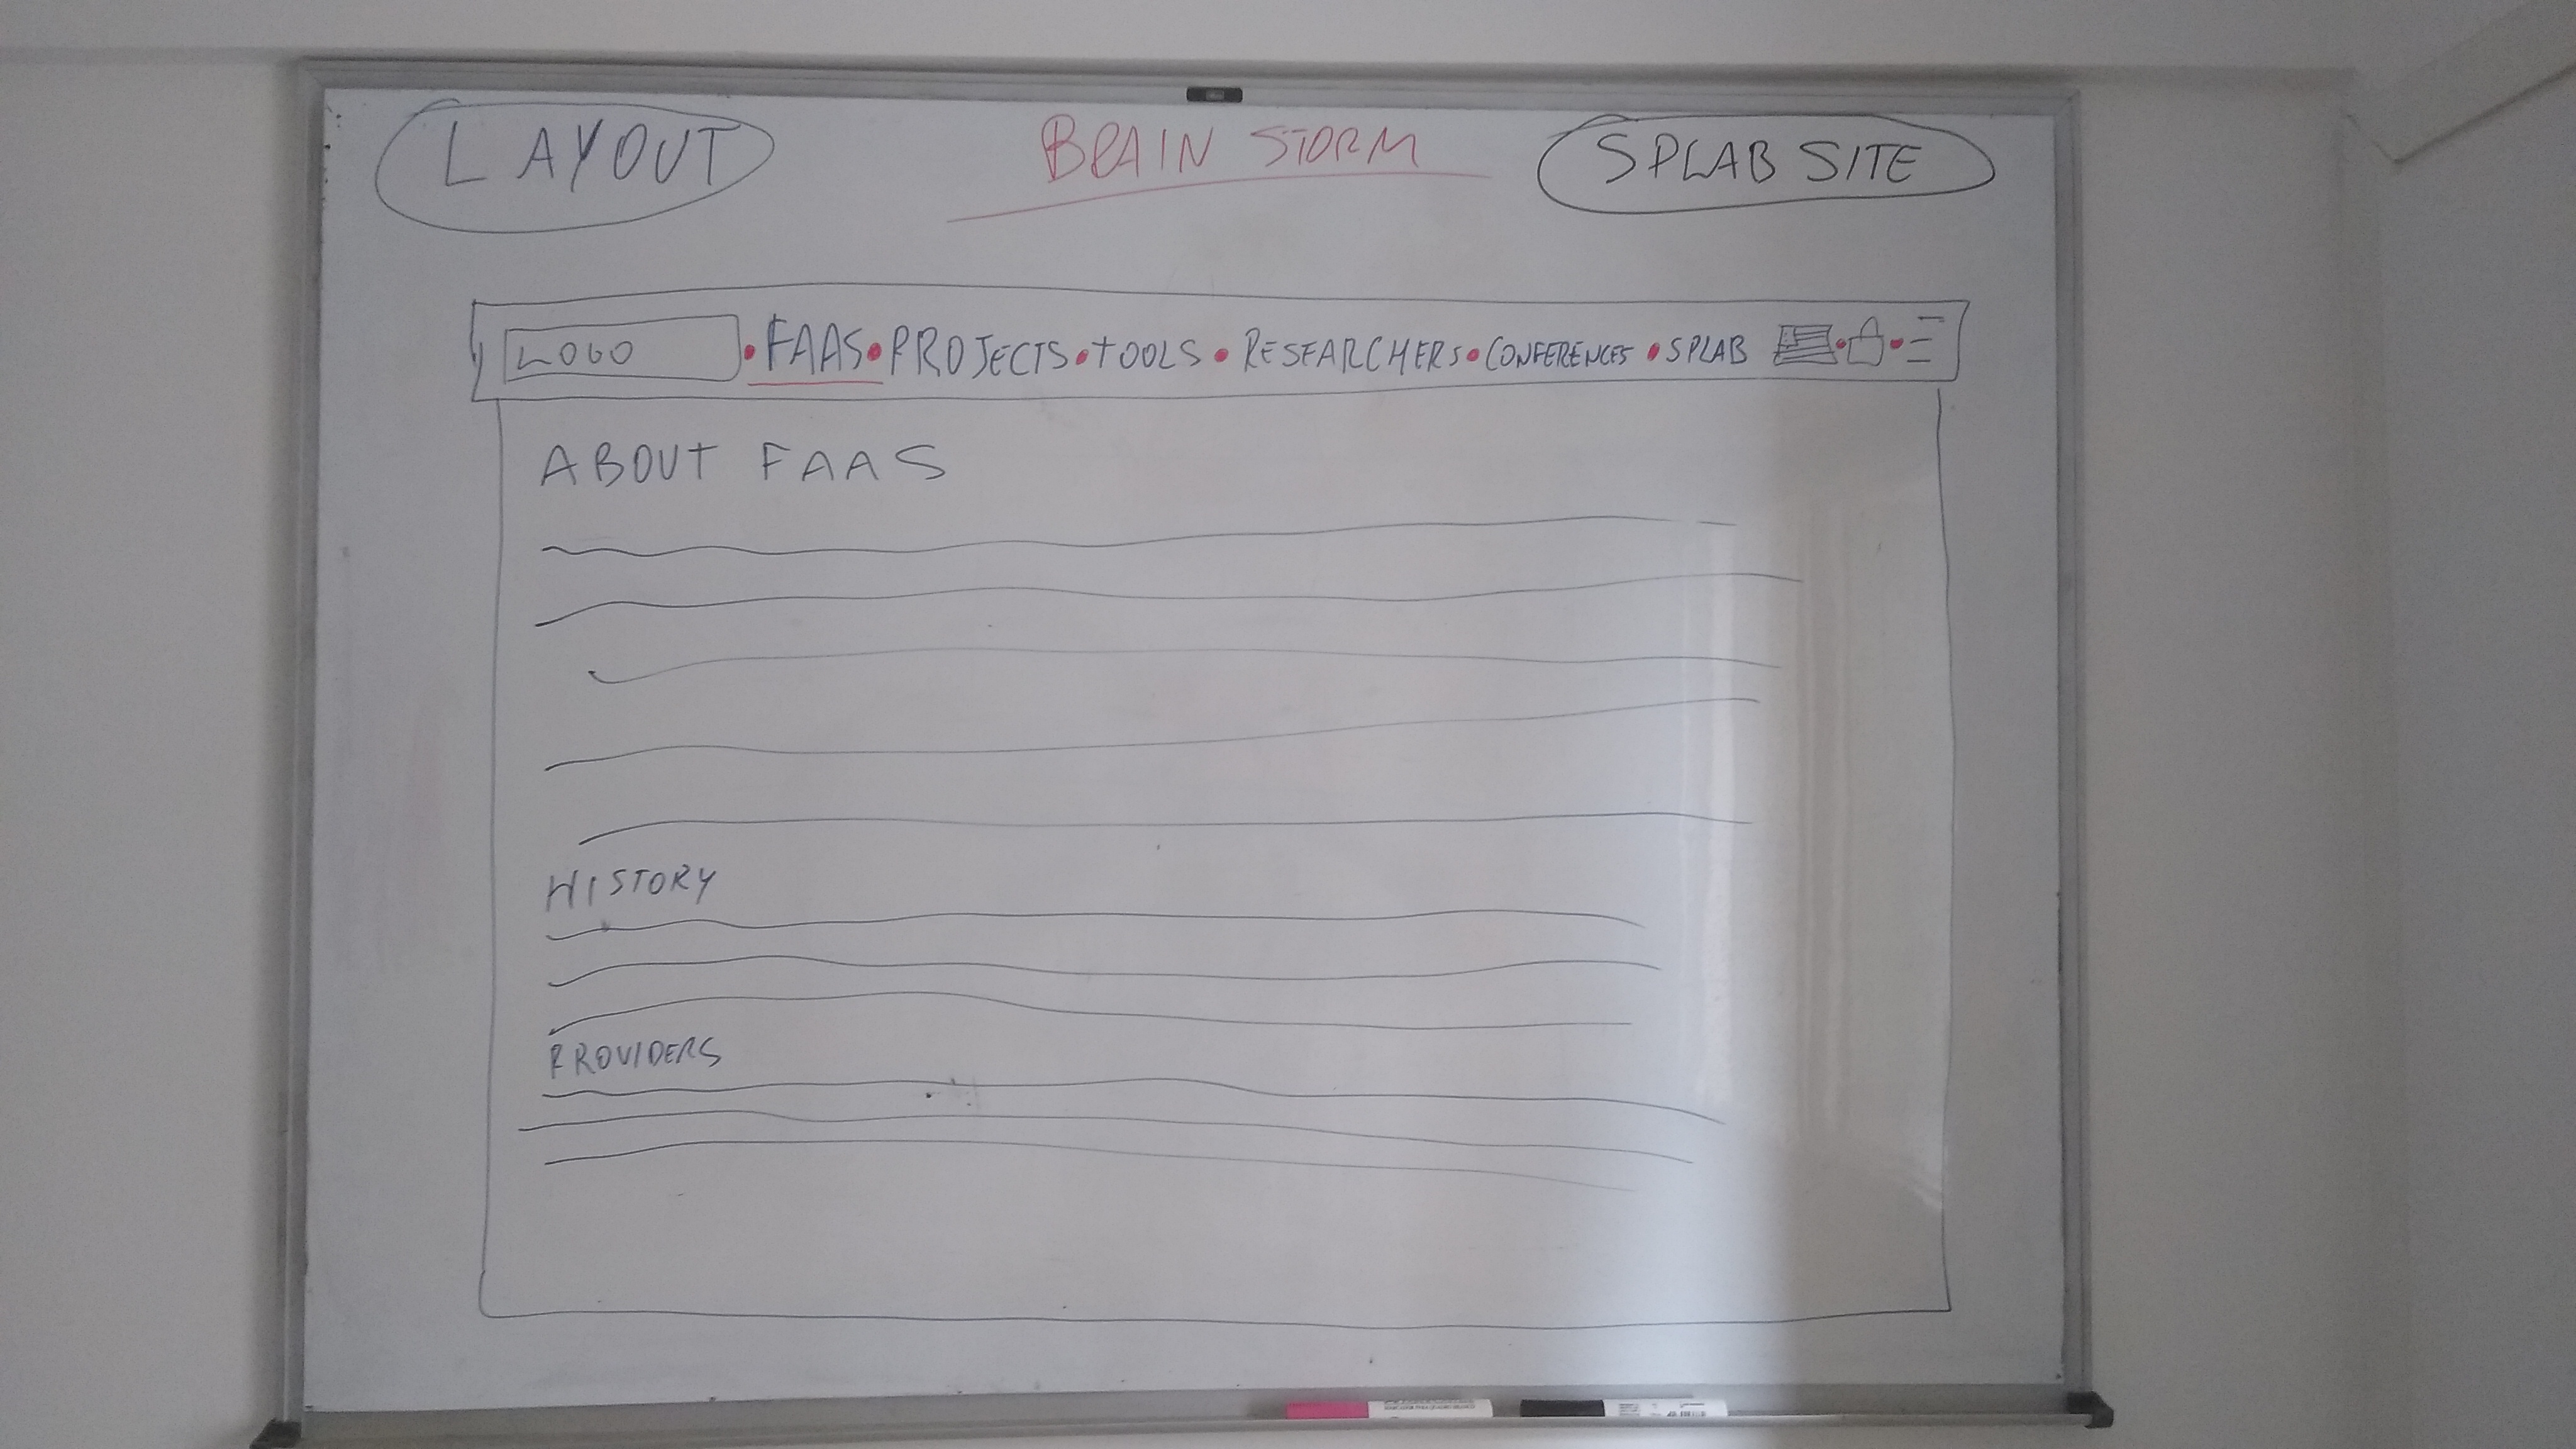 LAYOUT
BRAIN STORM
SPLAB SITE
LOGO • FAAS • PROJECTS • TOOLS • RESEARCHERS • CONFERENCES • SPLAB
ABOUT FAAS
HISTORY
PROVIDERS